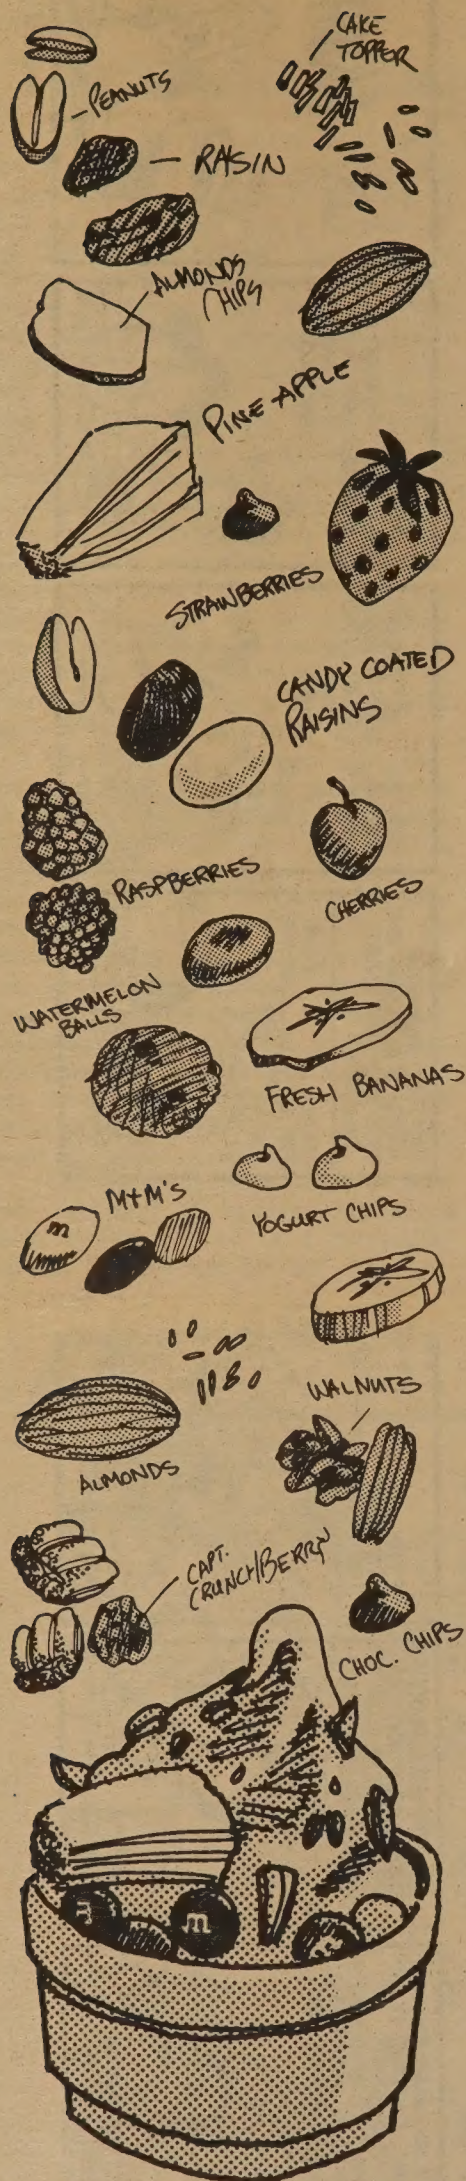 CAKE
TOPPER
PEANUTS
RAISIN
ALMONDS
CHIPS
PINE-APPLE
STRAWBERRIES
CANDY COATED
RAISINS
RASPBERRIES
CHERRIES
WATERMELON
BALLS
FRESH BANANAS
M+M'S
YOGURT CHIPS
WALNUTS
ALMONDS
CAPT.
CRUNCH/BERRY
CHOC. CHIPS
m
m
m